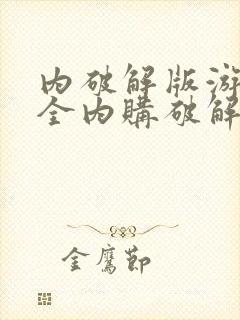 内破解版游
全内購破解
金鷹節